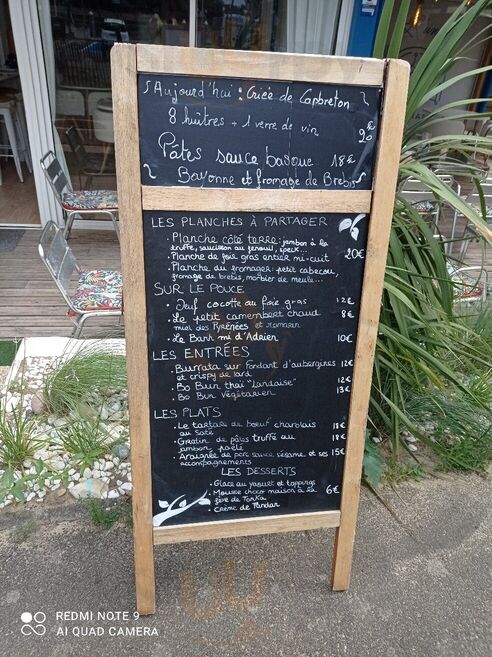 Aujourd'hui : Criée de Capbreton
8 huîtres + 1 verre de vin
20€
Pâtes sauce basque 18€
Bayonne et fromage de Brebis
LES PLANCHES À PARTAGER
. Planche côté terre : jambon à la
truffe, saucisson au fenouil, speck...
20€
. Planche de foie gras entier mi-cuit
. Planche du fromager : petit cabecou,
fromage de brebis, morbier de meule...
SUR LE POUCE
. Œuf cocotte au foie gras 12€
. Le petit camembert chaud 8€
miel des Pyrénées et romarin
. Le Banh mi d'Adrien 10€
LES ENTRÉES
. Burrata sur fondant d'aubergines 12€
et crispy de lard
. Bo Bun thaï "landaise" 12€
. Bo Bun Végétarien 13€
LES PLATS
. Le tartare de bœuf charolais 18€
au Saté
. Gratin de pâtes truffé au 18€
jambon, poêlé
. Araignée de porc sauce sésame et ses 15€
accompagnements
LES DESSERTS
. Glace au yaourt et toppings
. Mousse choco maison à la 6€
fève de Tonka
. Crème de Pandan
REDMI NOTE 9
AI QUAD CAMERA